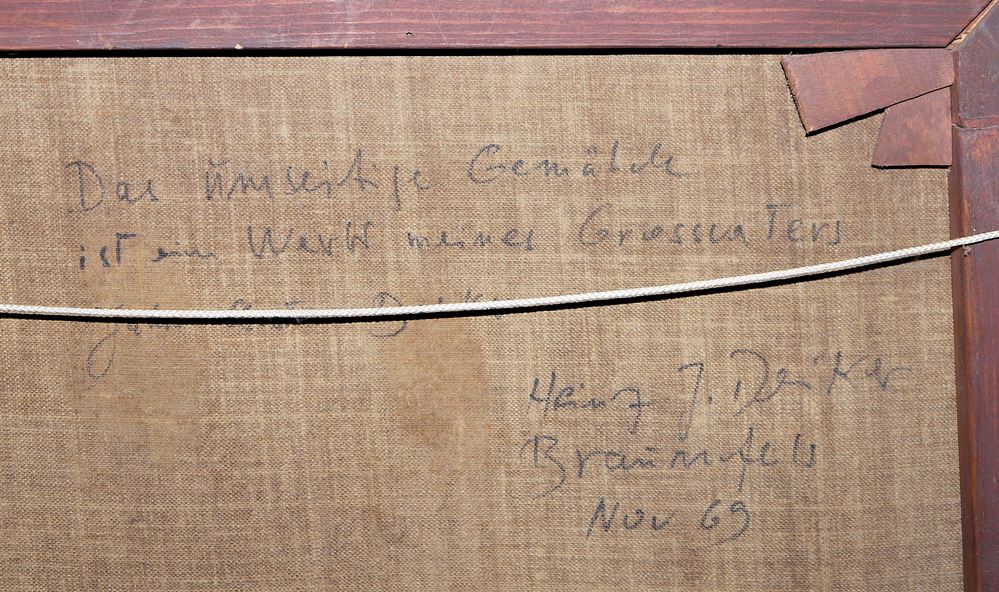 Das umseitige Gemälde
ist ein Werk meines Grossvaters
Heinz J. Deiker
Braunfels
Nov 69